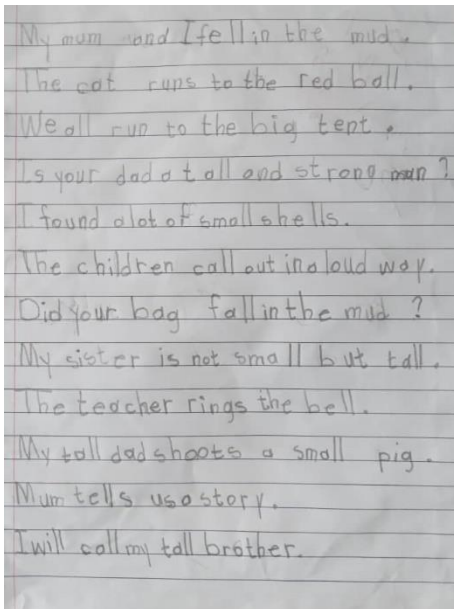 My mum and I fell in the mud.
The cat runs to the red ball.
We all run to the big tent.
Is your dad a tall and strong man?
I found a lot of small shells.
The children call out in a loud way.
Did your bag fall in the mud?
My sister is not small but tall.
The teacher rings the bell.
My tall dad shoots a small pig.
Mum tells us a story.
I will call my tall brother.